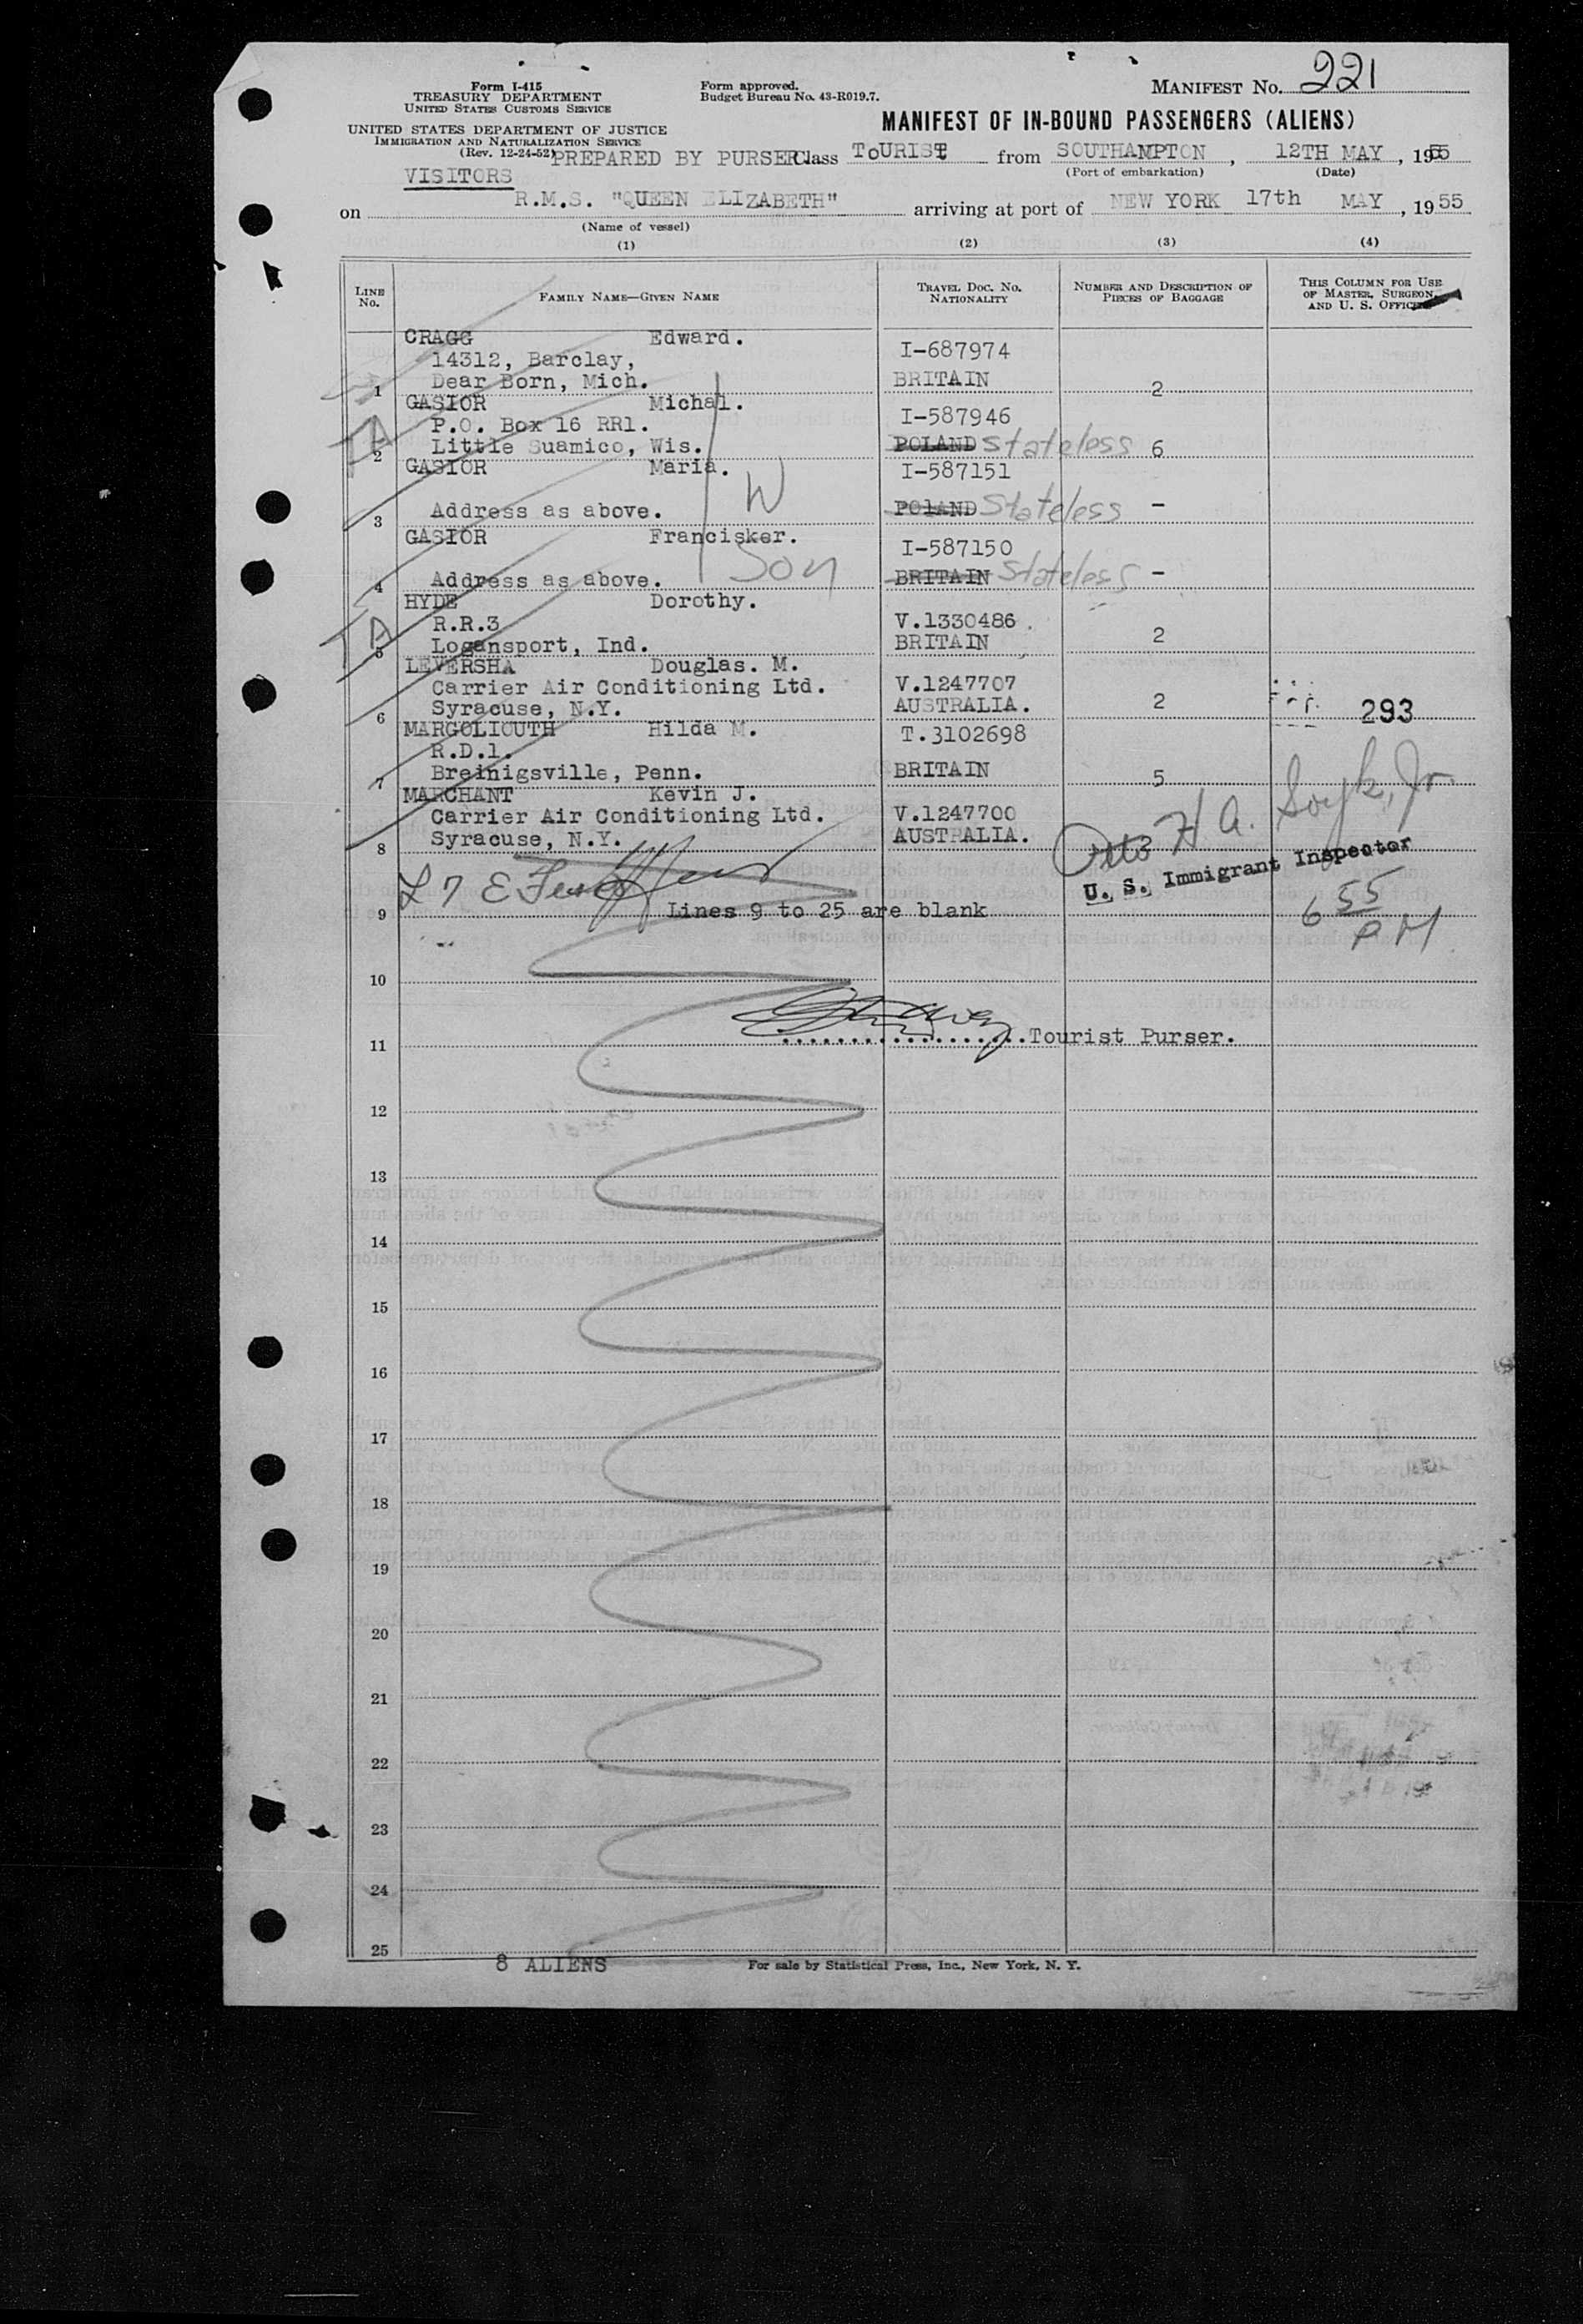 Form I-415
TREASURY DEPARTMENT
UNITED STATES CUSTOMS SERVICE
UNITED STATES DEPARTMENT OF JUSTICE
IMMIGRATION AND NATURALIZATION SERVICE
(Rev. 12-24-52)
Form approved.
Budget Bureau No. 43-R019.7.
MANIFEST No. 221
MANIFEST OF IN-BOUND PASSENGERS (ALIENS)
PREPARED BY PURSER Class TOURIST from SOUTHAMPTON, 12TH MAY, 1955
(Port of embarkation) (Date)
VISITORS
on R.M.S. "QUEEN ELIZABETH" arriving at port of NEW YORK 17th MAY, 1955
(Name of vessel)
(1) (2) (3) (4)
LINE No. FAMILY NAME—GIVEN NAME TRAVEL DOC. No. NATIONALITY NUMBER AND DESCRIPTION OF PIECES OF BAGGAGE THIS COLUMN FOR USE OF MASTER, SURGEON, AND U. S. OFFICERS
CRAGG Edward.
14312, Barclay, I-687974
1 Dear Born, Mich. BRITAIN 2
GASIOR Michal.
P.O. Box 16 RR1. I-587946
2 Little Suamico, Wis. POLAND Stateless 6
GASIOR Maria. I-587151
W
3 Address as above. POlAND Stateless -
GASIOR Francisker. I-587150
Son
4 Address as above. BRITAIN Stateless -
HYDE Dorothy.
R.R.3 V.1330486.
5 Logansport, Ind. BRITAIN 2
LEVERSHA Douglas. M.
Carrier Air Conditioning Ltd. V.1247707
6 Syracuse, N.Y. AUSTRALIA. 2 293
MARGOLIOUTH Hilda M. T.3102698
R.D.1.
7 Breinigsville, Penn. BRITAIN 5
MARCHANT Kevin J.
Carrier Air Conditioning Ltd. V.1247700
8 Syracuse, N.Y. AUSTRALIA. 2
Otto H. A.
U. S. Immigrant Inspector
6 55 PM
9 Lines 9 to 25 are blank
10
11 ..................Tourist Purser.
12
13
14
15
16
17
18
19
20
21
22
23
24
25
8 ALIENS
For sale by Statistical Press, Inc., New York, N. Y.